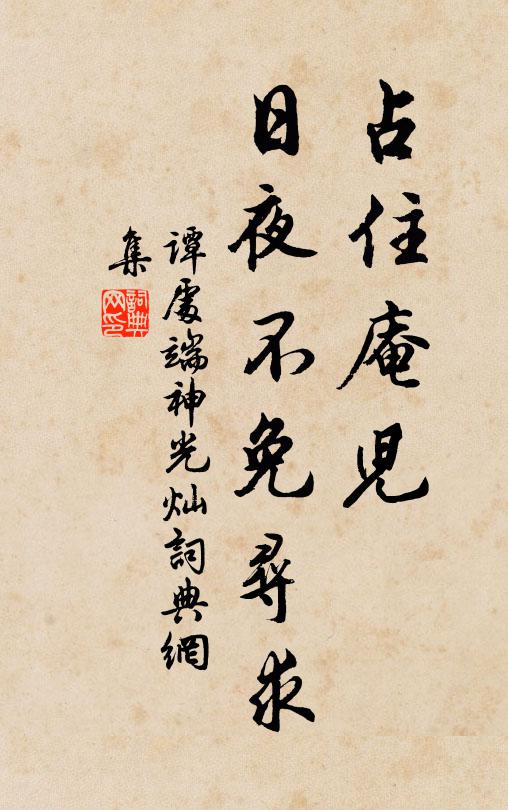 占住庵児
日夜不免尋求
谭處端神光灿詞典網
集
詞典
网印